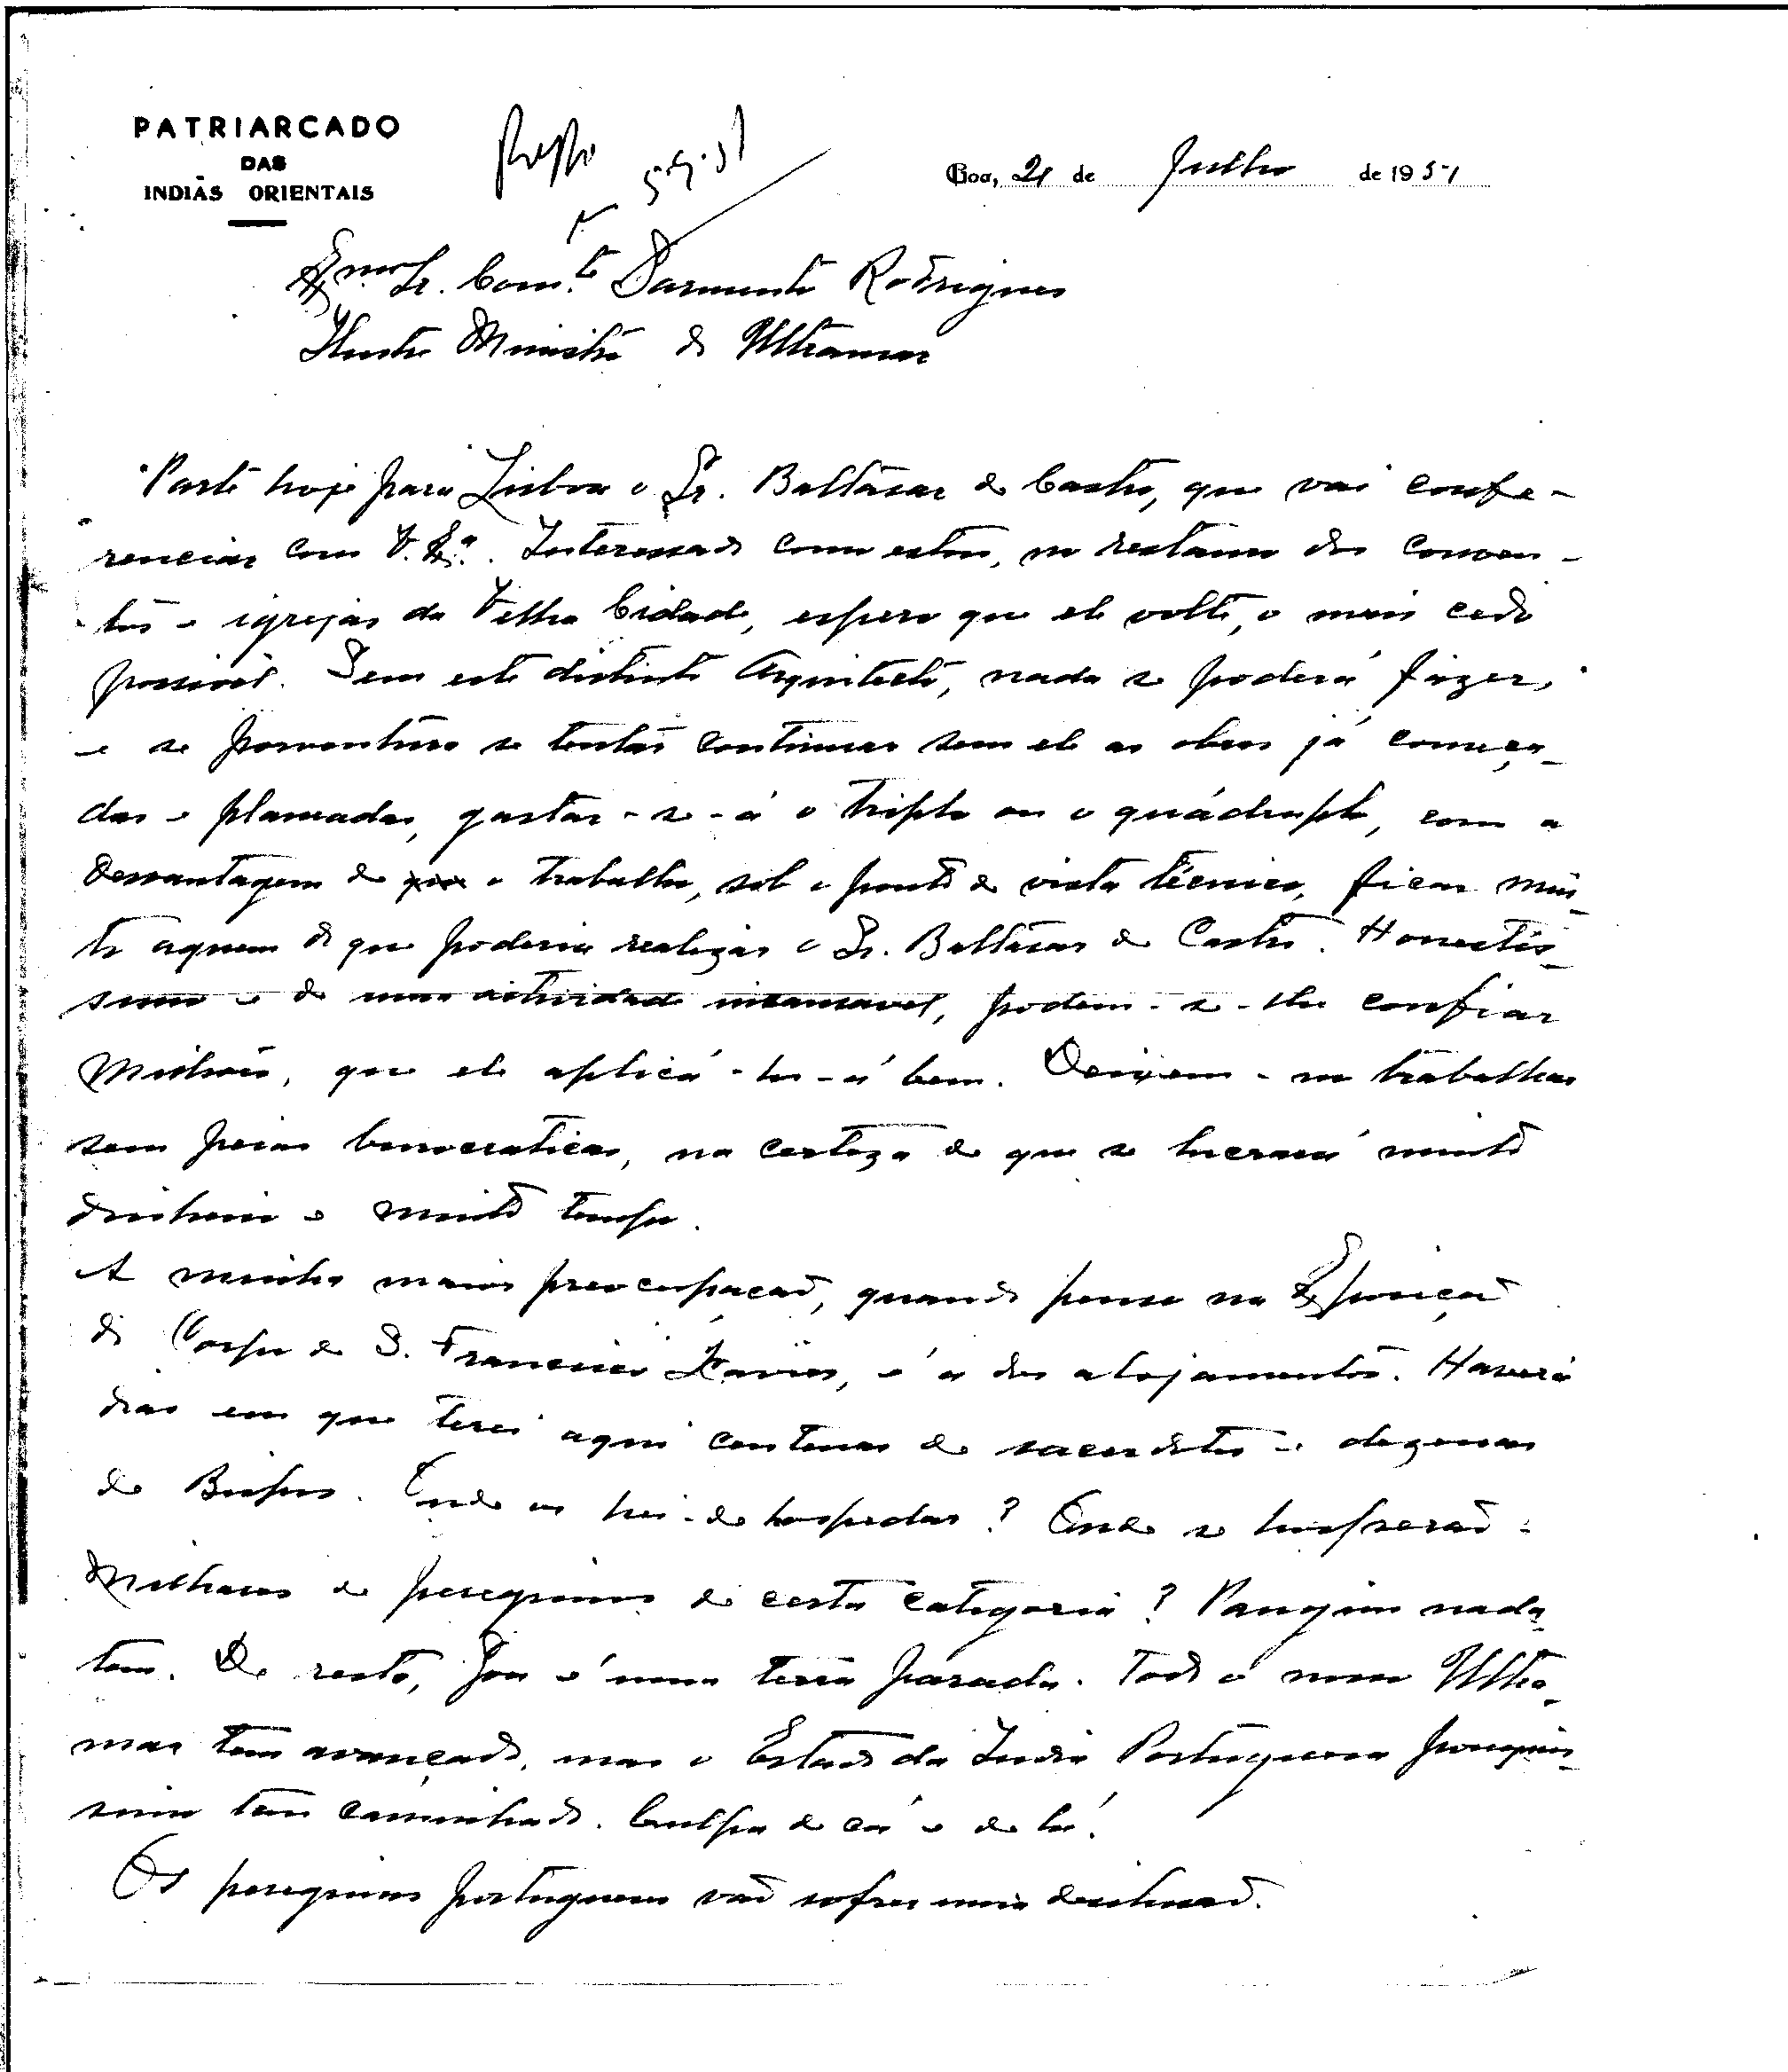 PATRIARCADO
DAS
INDIAS ORIENTAIS
Goa, 21 de Julho de 1951
Exmo Sr. Com.te Sarmento Rodrigues
Ilustre Ministro do Ultramar
Parte hoje para Lisboa o Sr. Baltasar de Castro, que vai confe-
renciar com V. Exª. Interessado como estou, no restauro dos conven-
tos e igrejas da Velha Cidade, espero que ele volte, o mais cedo
possivel. Sem este distinto Arquitecto, nada se poderá fazer,
e se porventura se tentar continuar sem ele as obras já começa-
das e planeadas, gastar-se-á o triplo ou o quádruplo, com a
desvantagem de o trabalho, sob o ponto de vista técnico, ficar mui-
to aquem do que poderia realizar o Sr. Baltasar de Castro. Honestís-
simo e de uma actividade incansavel, podem-se-lhe confiar
milhões, que ele aplicá-los-á bem. Deixem-no trabalhar
sem peias burocraticas, na certeza de que se lucrará muito
dinheiro e muito tempo.
A minha maior preocupação, quando penso na Exposição
do Corpo de S. Francisco Xavier, é a dos alojamentos. Haverá
dias em que terei aqui centenas de sacerdotes e dezenas
de Bispos. Onde os hei-de hospedar? Onde se hospedarão
milhares de peregrinos de certa categoria? Pangim nada
tem. De resto, Goa é uma terra parada. Todo o nosso Ultra-
mar tem avançado, mas o Estado da India Portuguesa pouquis-
simo tem caminhado. Culpa de cá e de lá.
Os peregrinos portugueses vão sofrer uma desilusão.